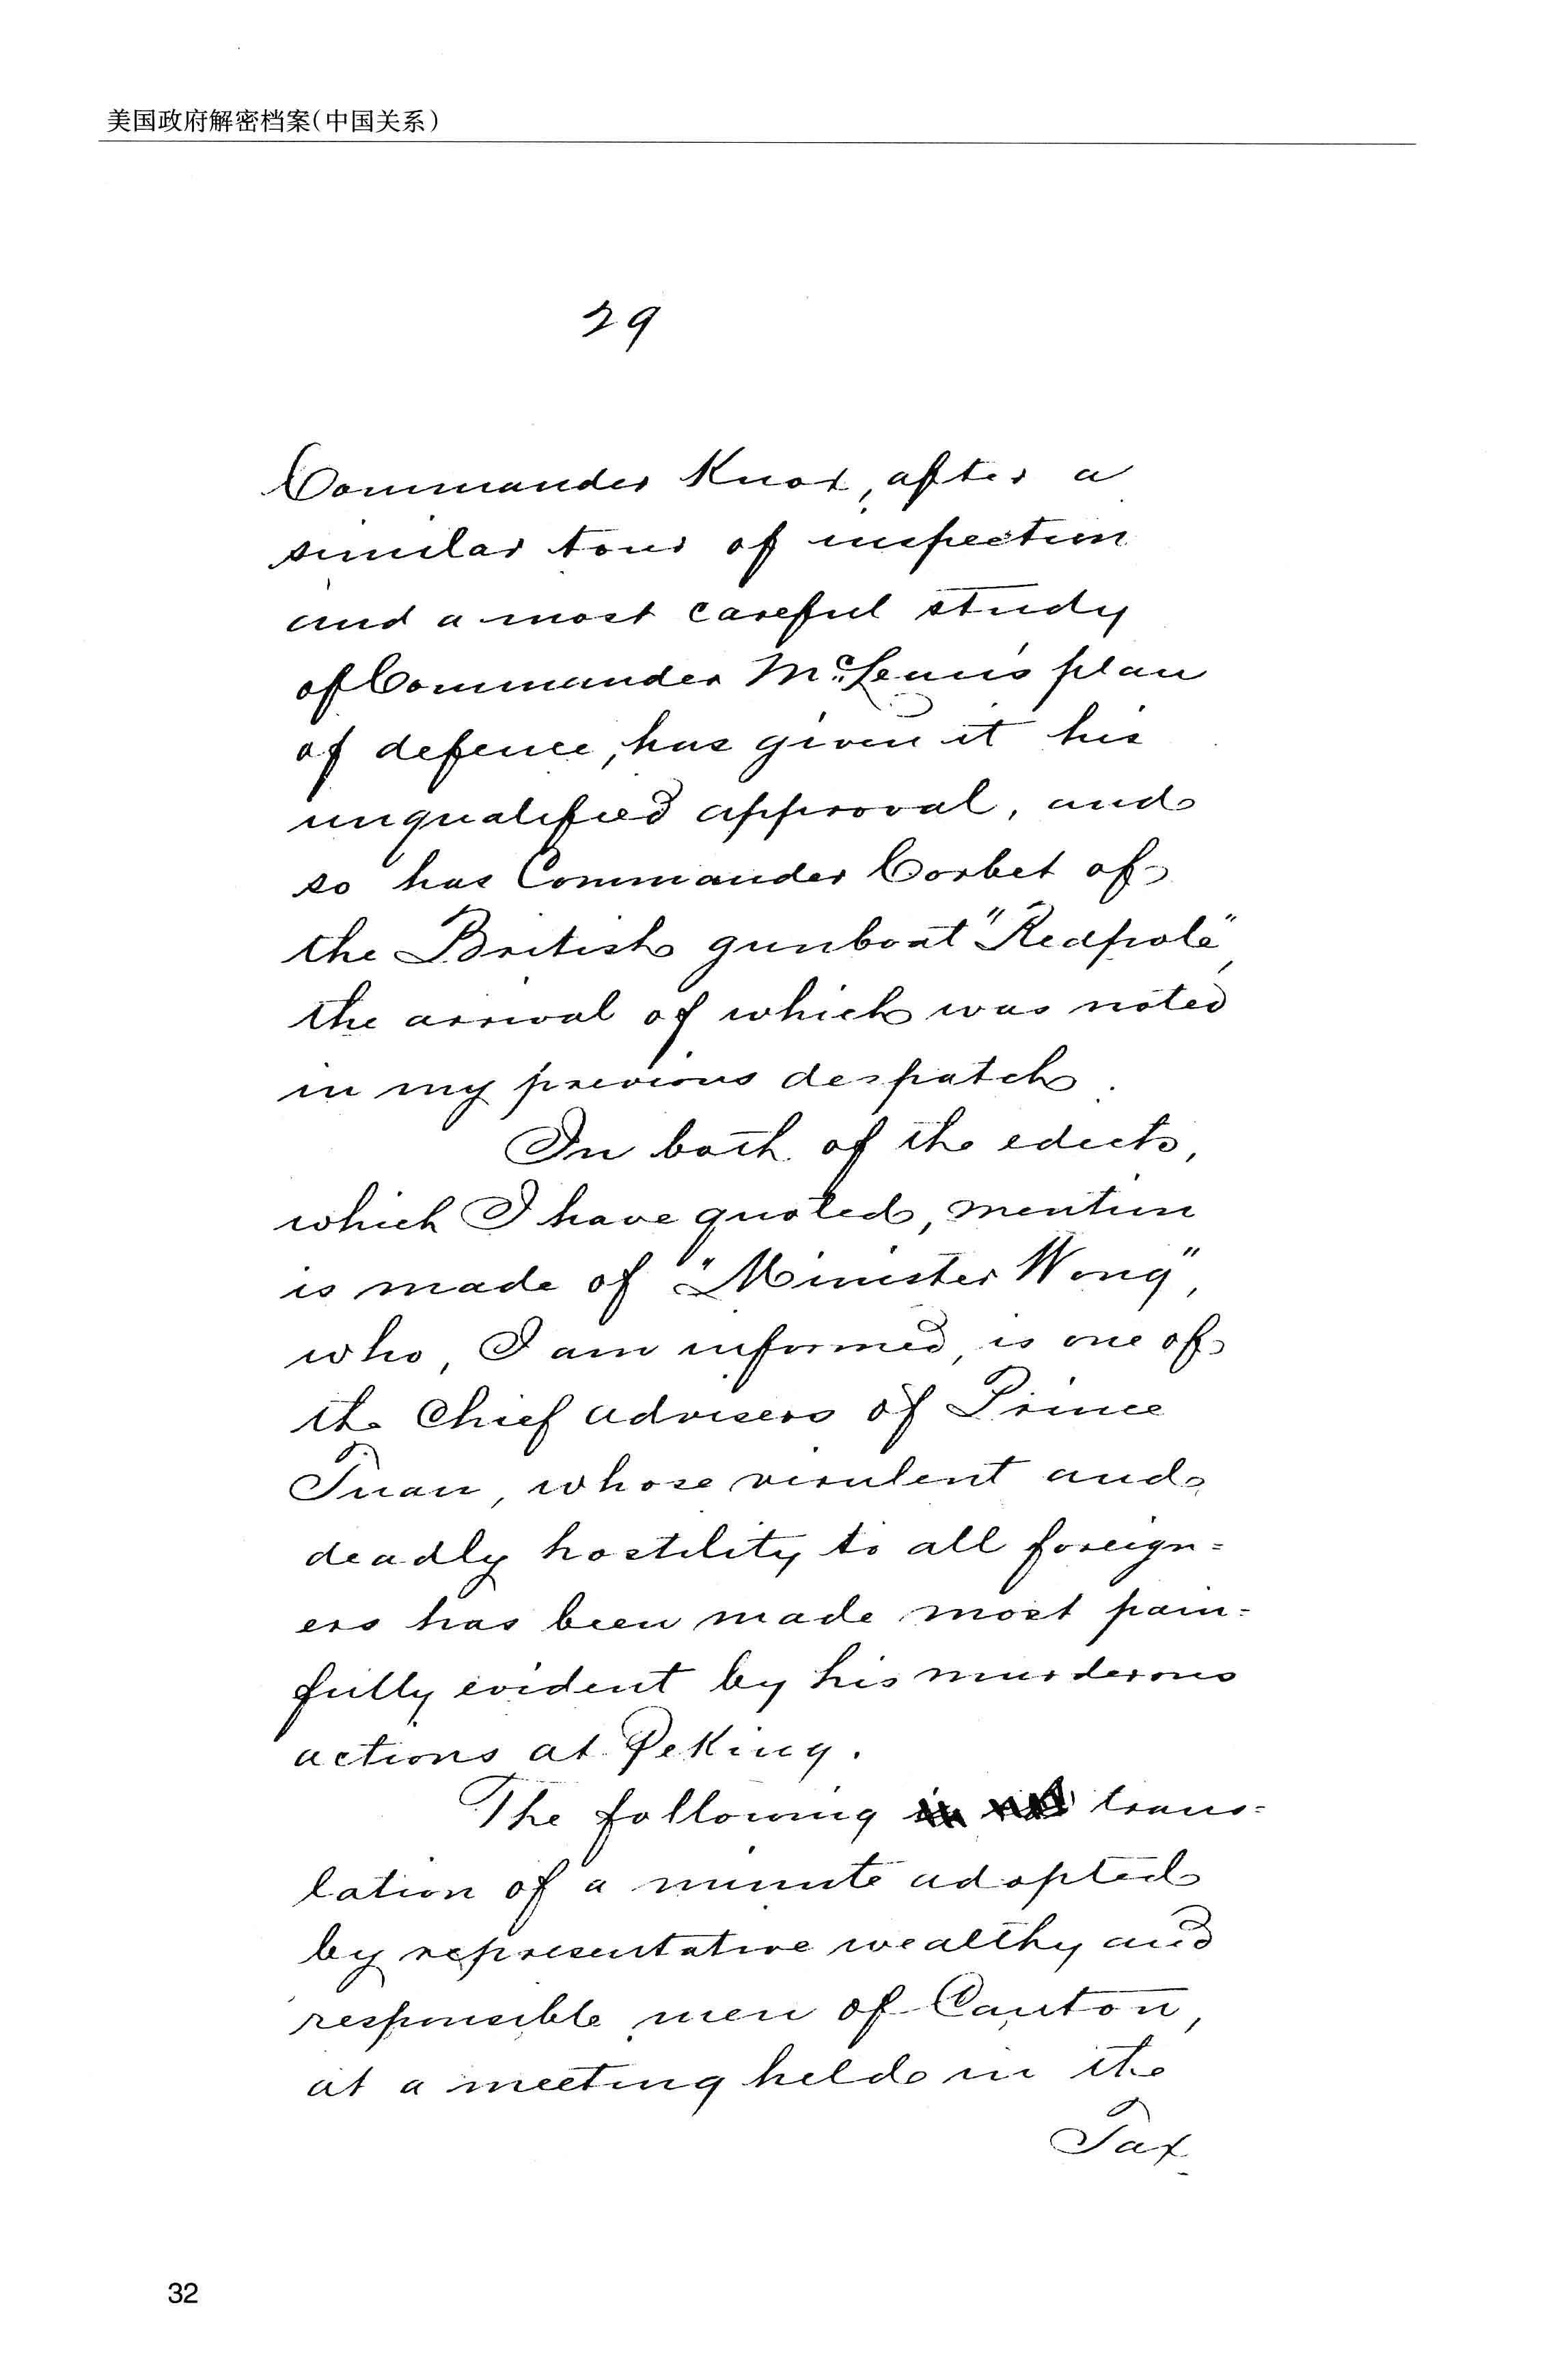 美国政府解密档案(中国关系)
29
Commander Knox, after a
similar tour of inspection
and a most careful study
of Commander McLean's plan
of defence, has given it his
unqualified approval, and
so has Commander Corbet of
the British gunboat "Redpole",
the arrival of which was noted
in my previous despatch.
In both of the edicts,
which I have quoted, mention
is made of "Minister Wong",
who, I am informed, is one of
the Chief advisers of Prince
Tuan, whose virulent and
deadly hostility to all foreign=
ers has been made most pain=
fully evident by his murderous
actions at Peking.
The following trans=
lation of a minute adopted
by representative wealthy and
responsible men of Canton,
at a meeting held in the
Tax
32